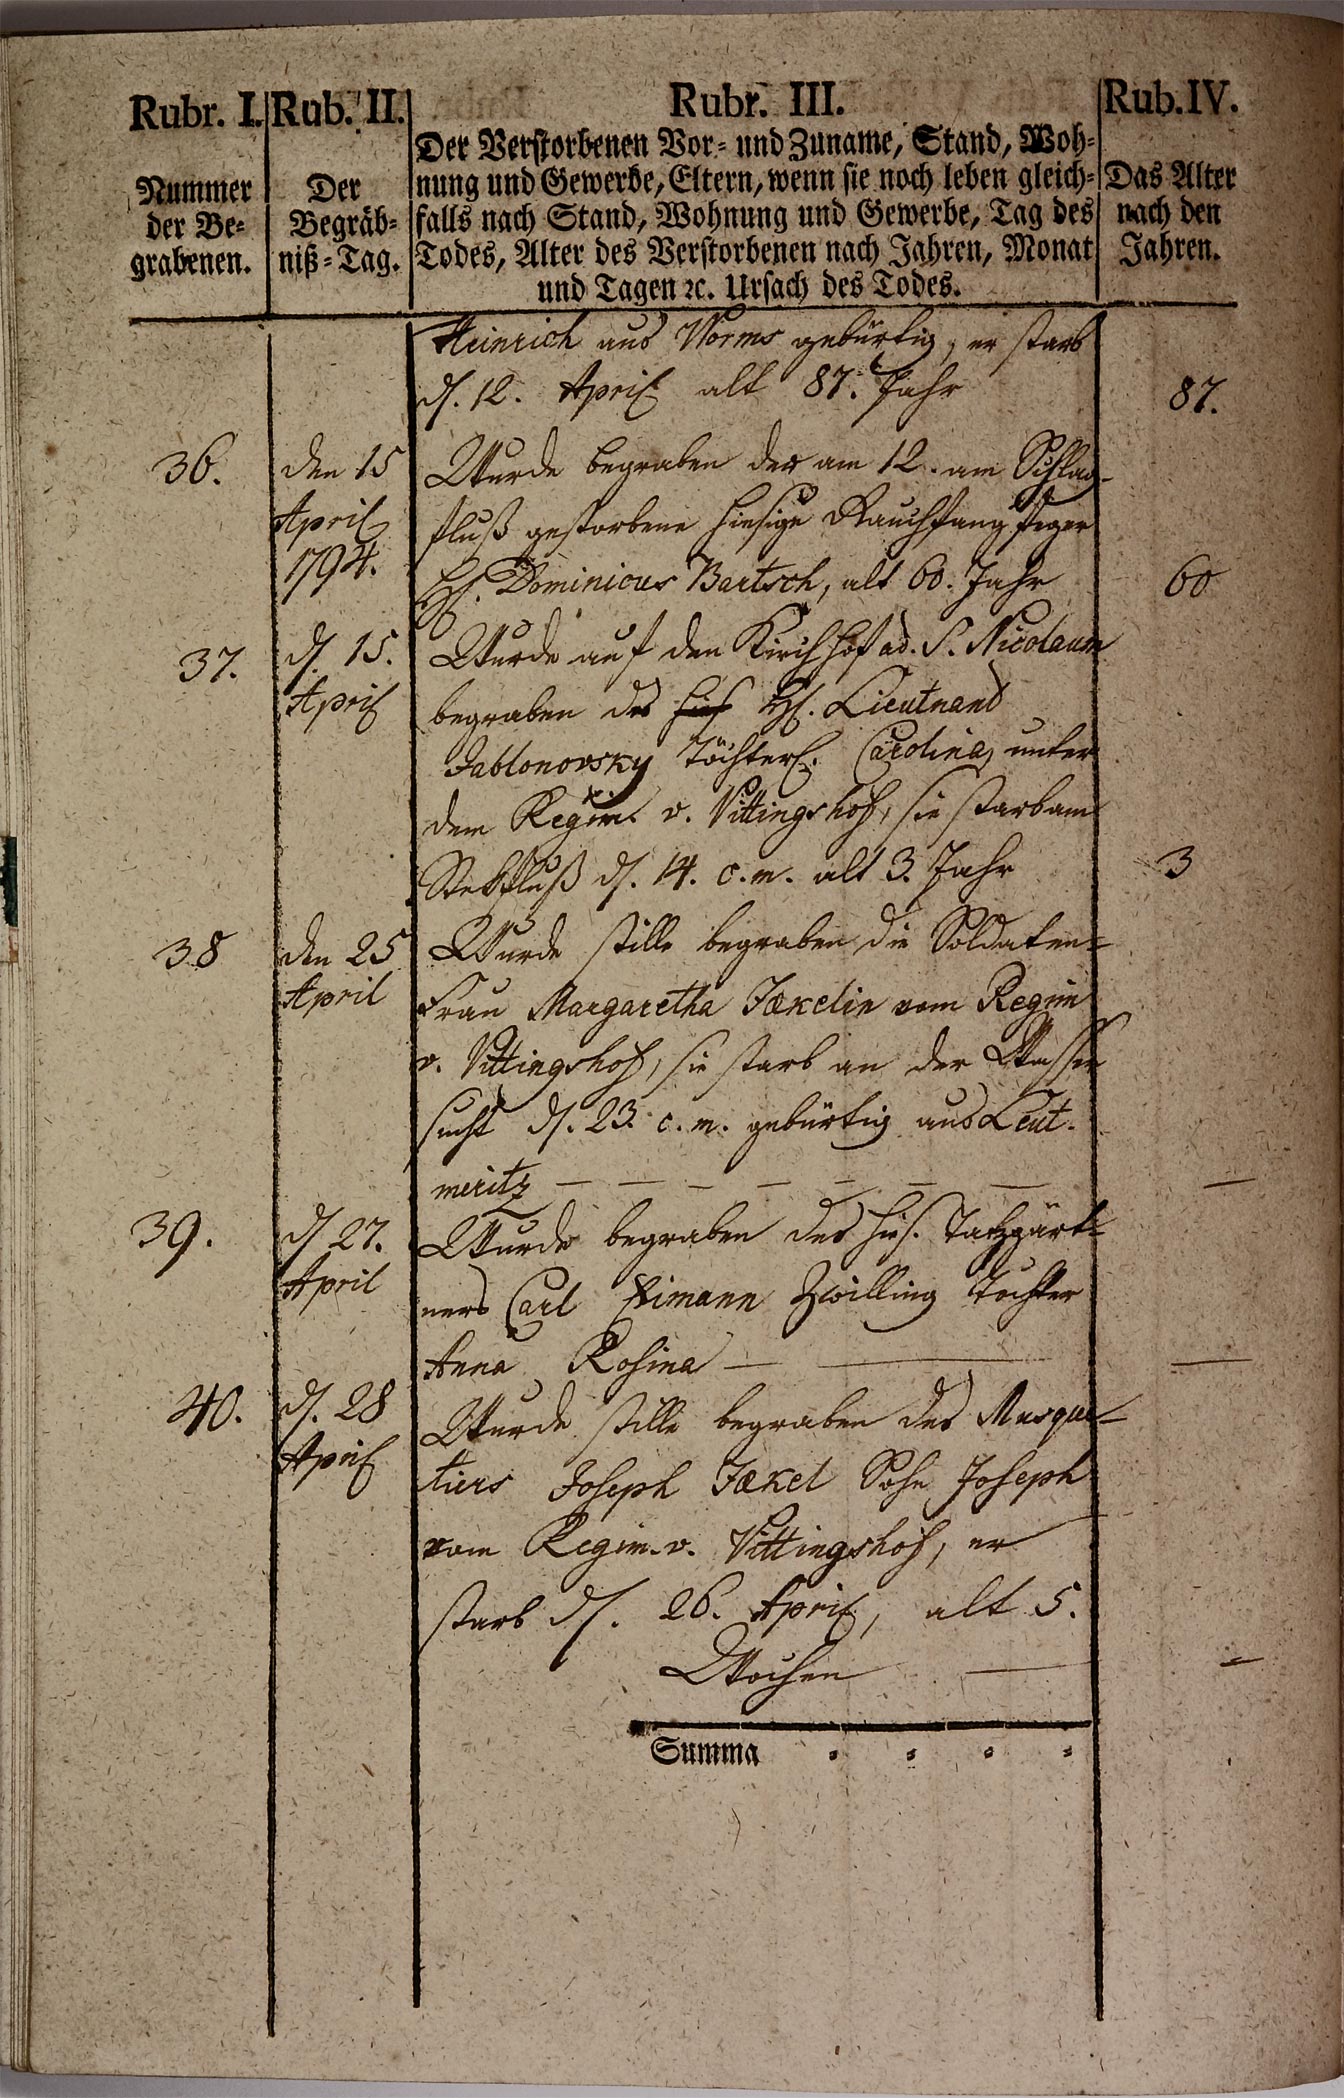 Rubr. I. Rub. II. Rubr. III. Rub. IV.
Nummer der Be- grabenen.
Der Begräb- niß-Tag.
Der Verstorbenen Vor- und Zuname, Stand, Woh-
nung und Gewerbe, Eltern, wenn sie noch leben gleich-
falls nach Stand, Wohnung und Gewerbe, Tag des
Todes, Alter des Verstorbenen nach Jahren, Monat
und Tagen ꝛc. Ursach des Todes.
Das Alter nach den Jahren.
Heinrich aus Worms gebürtig, er starb
d. 12. April alt 87. Jahr 87.
36. den 15 April 1794.
Wurde begraben der am 12. am Schlag-
fluß gestorbene hiesige Rauchfangfeger
H. Dominicus Bartsch, alt 60. Jahr 60
37. d. 15. April
Wurde auf den Kirchhof ad. S. Nicolaum
begraben des hies H. Lieutnand
Jablonovsky Töchterl. Carolina, unter
dem Regim. v. Vittingshof, sie starb am
Stekfluß d. 14. c. m. alt 3. Jahr 3
38 den 25 April
Wurde stille begraben die Soldaten-
Frau Margaretha Jækelin vom Regim
v. Vittingshof, sie starb an der Wasser
sucht d. 23. c. m. gebürtig aus Leut-
meritz — — — — — — — —
39. d 27. April
Wurde begraben des hies.
ners Carl Zwilling Tochter
Anna Rosina — — —
40. d. 28 April
Wurde stille begraben des Musque-
tiers Joseph Jækel Sohn Joseph
vom Regim. v. Vittingshof, er
starb d. 26. April, alt 5.
Wochen — —
Summa